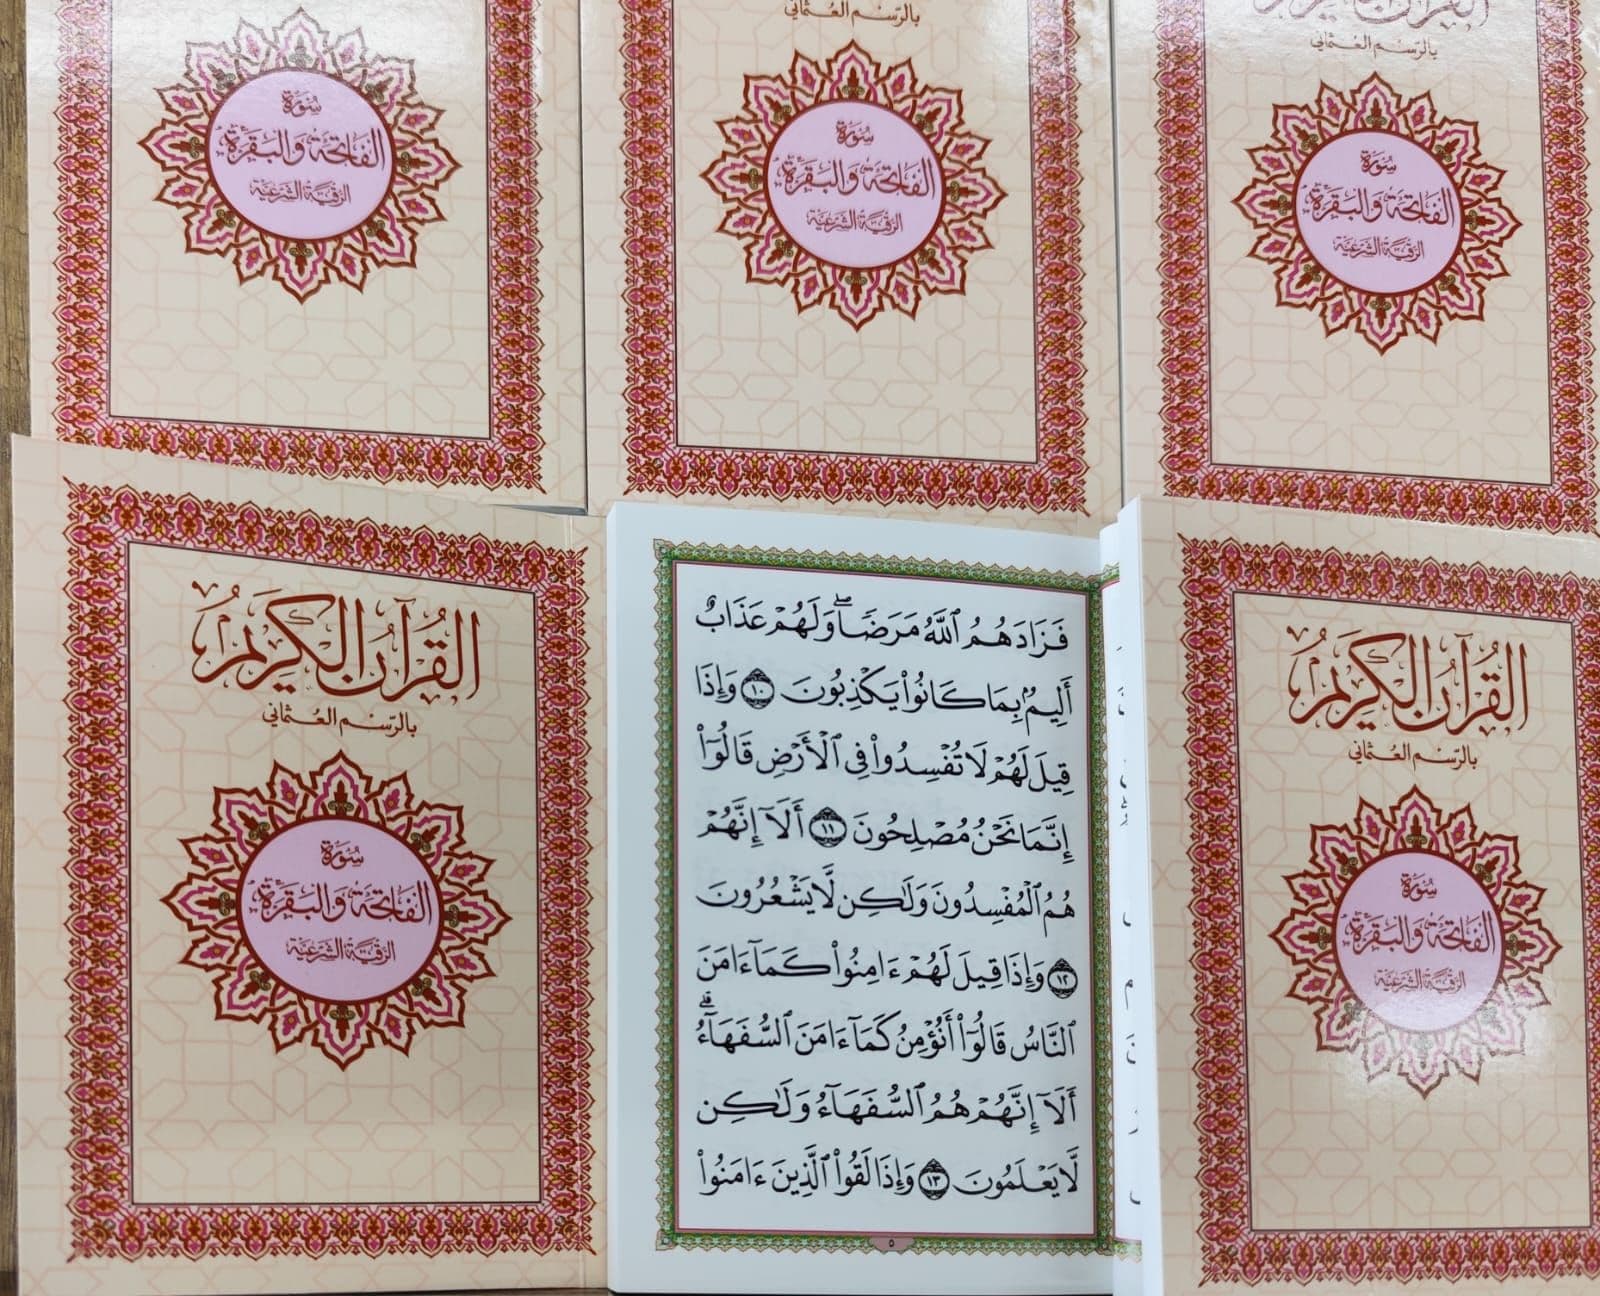 سُورَة
الفَاتِحَة وَالبَقَرَة
الرّقيَة الشَرعيَة
بالرّسْم العُثماني
سُورَة
الفَاتِحَة وَالبَقَرَة
الرّقيَة الشَرعيَة
القُرآن الكَرِيمْ
بالرّسْم العُثماني
سُورَة
الفَاتِحَة وَالبَقَرَة
الرّقيَة الشَرعيَة
القُرآن الكَرِيمْ
بالرّسْم العُثماني
سُورَة
الفَاتِحَة وَالبَقَرَة
الرّقيَة الشَرعيَة
فَزَادَهُمُ ٱللَّهُ مَرَضٗاۖ وَلَهُمۡ عَذَابٌ
أَلِيمُۢ بِمَا كَانُواْ يَكۡذِبُونَ ١٠ وَإِذَا
قِيلَ لَهُمۡ لَا تُفۡسِدُواْ فِي ٱلۡأَرۡضِ قَالُوٓاْ
إِنَّمَا نَحۡنُ مُصۡلِحُونَ ١١ أَلَآ إِنَّهُمۡ
هُمُ ٱلۡمُفۡسِدُونَ وَلَٰكِن لَّا يَشۡعُرُونَ
١٢ وَإِذَا قِيلَ لَهُمۡ ءَامِنُواْ كَمَآ ءَامَنَ
ٱلنَّاسُ قَالُوٓاْ أَنُؤۡمِنُ كَمَآ ءَامَنَ ٱلسُّفَهَآءُۗ
أَلَآ إِنَّهُمۡ هُمُ ٱلسُّفَهَآءُ وَلَٰكِن
لَّا يَعۡلَمُونَ ١٣ وَإِذَا لَقُواْ ٱلَّذِينَ ءَامَنُواْ
٥
القُرآن الكَرِيمْ
بالرّسْم العُثماني
سُورَة
الفَاتِحَة وَالبَقَرَة
الرّقيَة الشَرعيَة